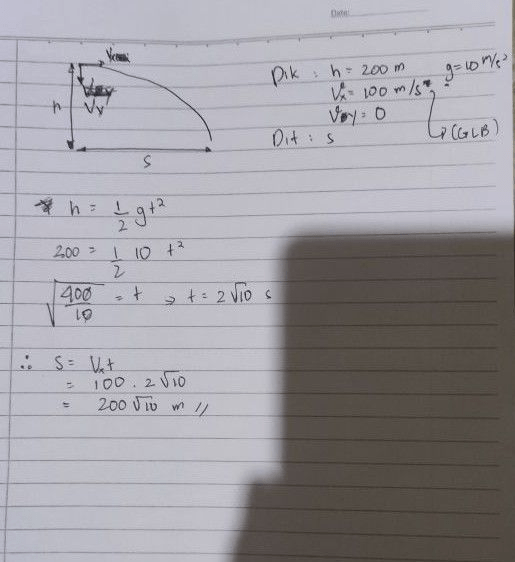 Date:
h
Vy
s
Dik : h = 200 m g = 10 m/s²
Vx = 100 m/s → (GLB)
Voy = 0
Dit : s
h = 1/2 gt²
200 = 1/2 10 t²
√(400/10) = t → t = 2√10 s
∴ S = Vxt
= 100 . 2√10
= 200√10 m //